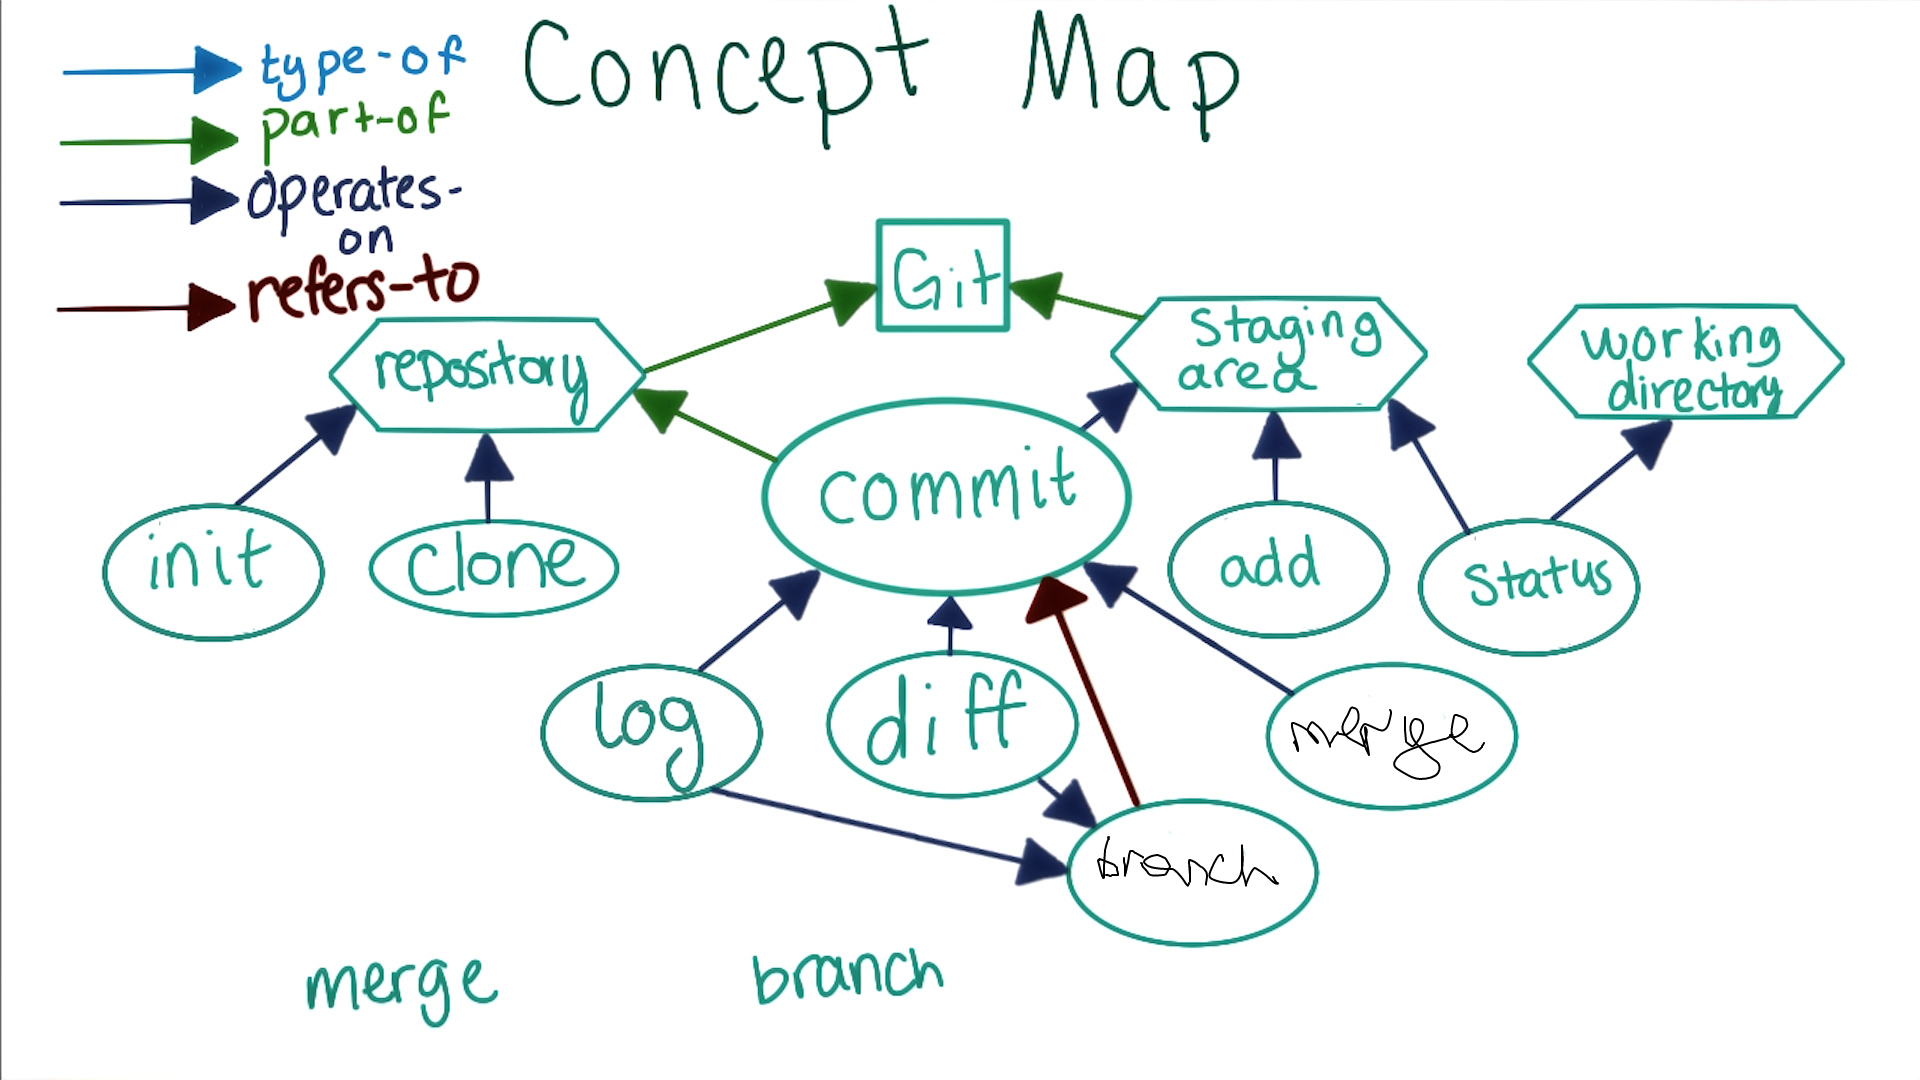 Concept Map
type-of
part-of
operates-
on
refers-to
Git
repository
Staging
area
working
directory
commit
init
clone
add
status
log
diff
merge
branch
merge
branch